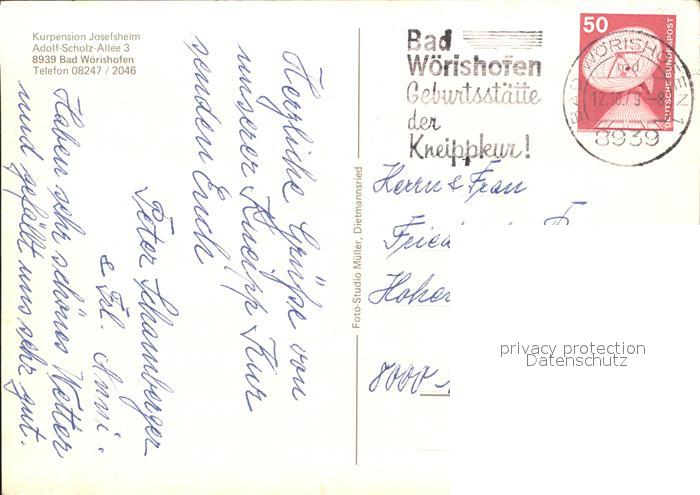 Kurpension Josefsheim
Adolf-Scholz-Allee 3
8939 Bad Wörishofen
Telefon 08247 / 2046
Herzliche Grüße von
unserer Kneipp Kur
senden Euch
Peter Schamberger
& Frl. Anni.
Haben sehr schönes Wetter
und gefällt uns sehr gut.
Foto-Studio Müller, Dietmannsried
Bad
Wörishofen
Geburtsstätte
der
Kneippkur!
50
DEUTSCHE BUNDESPOST
BAD WÖRISHOFEN 1
8939
Herrn & Frau
8000
privacy protection
Datenschutz